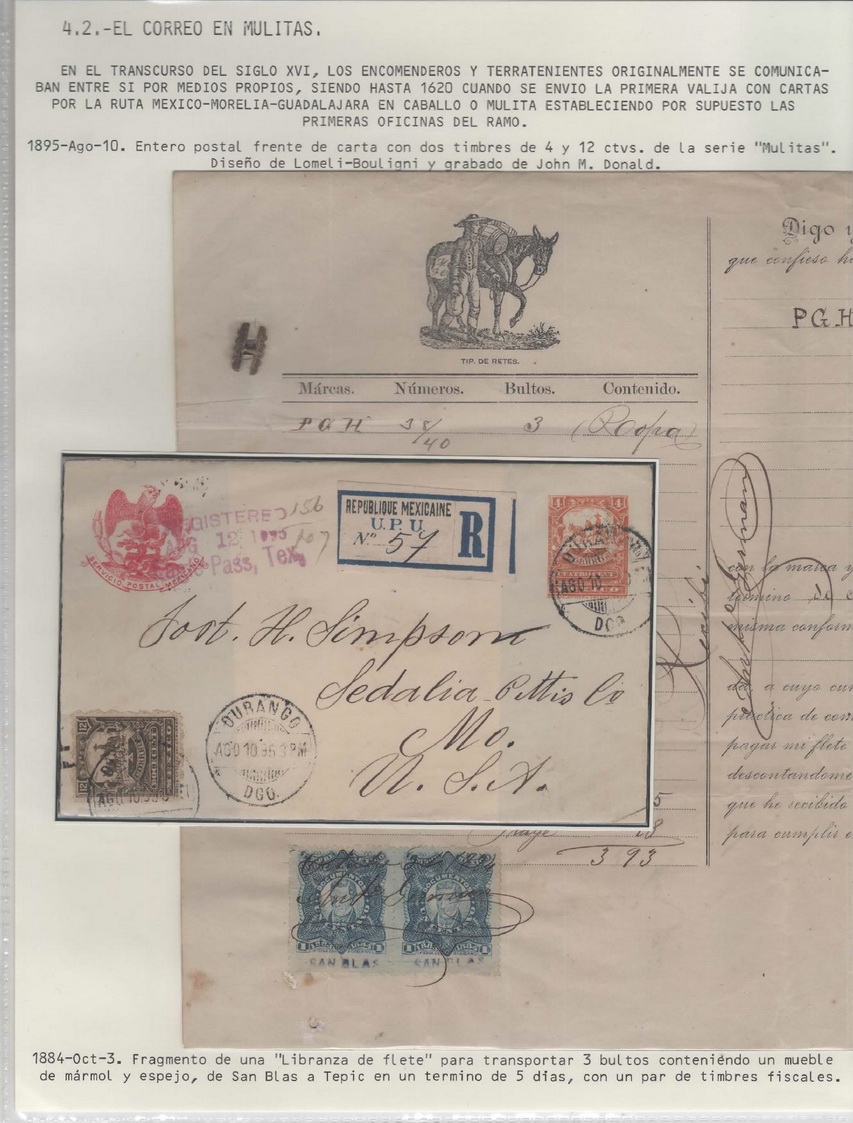 4.2.-EL CORREO EN MULITAS.
EN EL TRANSCURSO DEL SIGLO XVI, LOS ENCOMENDEROS Y TERRATENIENTES ORIGINALMENTE SE COMUNICA-
BAN ENTRE SI POR MEDIOS PROPIOS, SIENDO HASTA 1620 CUANDO SE ENVIO LA PRIMERA VALIJA CON CARTAS
POR LA RUTA MEXICO-MORELIA-GUADALAJARA EN CABALLO O MULITA ESTABLECIENDO POR SUPUESTO LAS
PRIMERAS OFICINAS DEL RAMO.
1895-Ago-10. Entero postal frente de carta con dos timbres de 4 y 12 ctvs. de la serie "Mulitas".
Diseño de Lomelí-Bouligni y grabado de John M. Donald.
Digo y
que confieso
PGH
TIP. DE RETES.
Márcas. Números. Bultos. Contenido.
PGH 38/40 3 (Ropa)
SERVICIO POSTAL MEXICANO
GISTERED
12 1895
Pass, Tex.
156
107
REPUBLIQUE MEXICAINE
U.P.U.
Nº 57
R
4
DURANGO
AGO 10
DGO.
Post. H. Simpson
Sedalia Pettis Co
Mo.
U. S. A.
12
DURANGO
AGO 10.95 3 PM
DGO.
AGO 10.95
Recibí
con la marca y
termino de
misma conform
a cuyo cum
práctica de
pagar mi flete
descontándome
que he recibido
para cumplir
5
18
3 93
DOCUMENTOS
DOCUMENTOS
SAN BLAS SAN BLAS
1884-Oct-3. Fragmento de una "Libranza de flete" para transportar 3 bultos conteniéndo un mueble
de mármol y espejo, de San Blas a Tepic en un termino de 5 días, con un par de timbres fiscales.